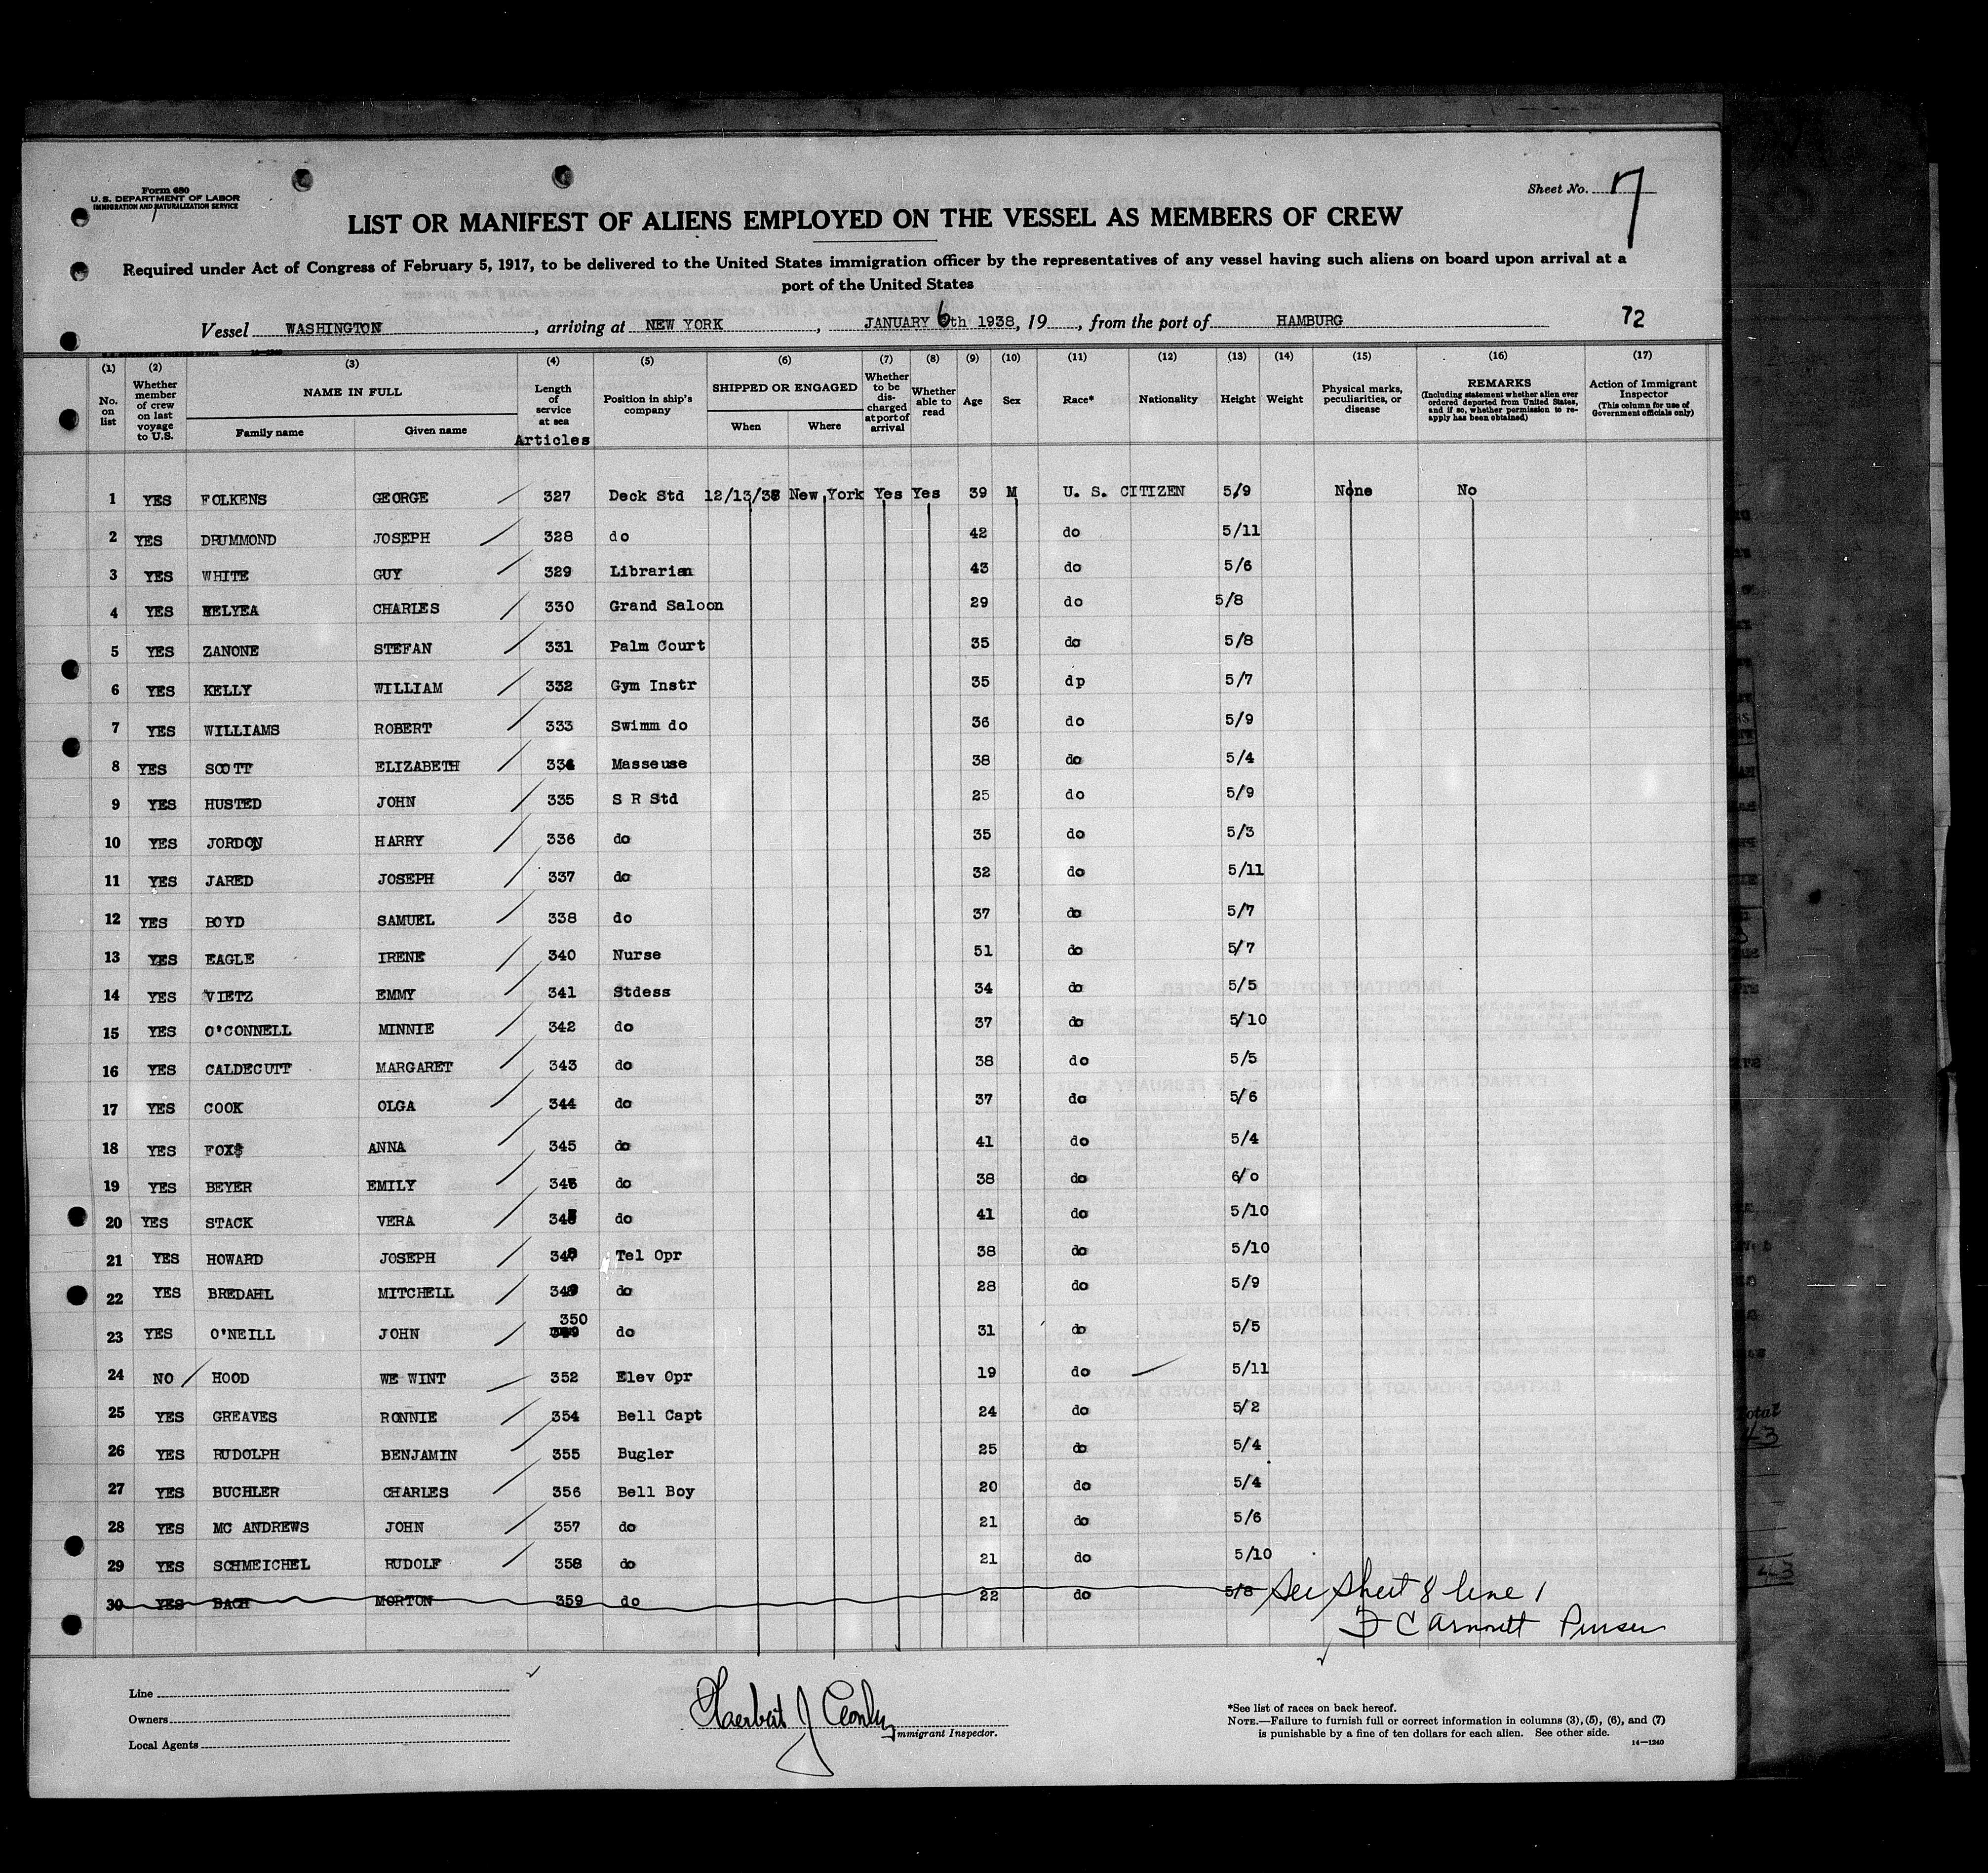 Form 680
U. S. DEPARTMENT OF LABOR
IMMIGRATION AND NATURALIZATION SERVICE
Sheet No. 7
LIST OR MANIFEST OF ALIENS EMPLOYED ON THE VESSEL AS MEMBERS OF CREW
Required under Act of Congress of February 5, 1917, to be delivered to the United States immigration officer by the representatives of any vessel having such aliens on board upon arrival at a
port of the United States
Vessel WASHINGTON, arriving at NEW YORK, JANUARY 6th 1938, 19, from the port of HAMBURG 72
(1) (2) (3) (4) (5) (6) (7) (8) (9) (10) (11) (12) (13) (14) (15) (16) (17)
No. on list
Whether member of crew on last voyage to U.S.
NAME IN FULL
Family name Given name
Length of service at sea
Articles
Position in ship's company
SHIPPED OR ENGAGED
When Where
Whether to be discharged at port of arrival
Whether able to read
Age
Sex
Race*
Nationality
Height
Weight
Physical marks, peculiarities, or disease
REMARKS
(Including statement whether alien ever ordered deported from United States, and if so, whether permission to re-apply has been obtained)
Action of Immigrant Inspector
(This column for use of Government officials only)
1 YES FOLKENS GEORGE 327 Deck Std 12/13/38 New York Yes Yes 39 M U. S. CITIZEN 5/9 None No
2 YES DRUMMOND JOSEPH 328 do 42 do 5/11
3 YES WHITE GUY 329 Librarian 43 do 5/6
4 YES RELYEA CHARLES 330 Grand Saloon 29 do 5/8
5 YES ZANONE STEFAN 331 Palm Court 35 do 5/8
6 YES KELLY WILLIAM 332 Gym Instr 35 dp 5/7
7 YES WILLIAMS ROBERT 333 Swimm do 36 do 5/9
8 YES SCOTT ELIZABETH 334 Masseuse 38 do 5/4
9 YES HUSTED JOHN 335 S R Std 25 do 5/9
10 YES JORDON HARRY 336 do 35 do 5/3
11 YES JARED JOSEPH 337 do 32 do 5/11
12 YES BOYD SAMUEL 338 do 37 do 5/7
13 YES EAGLE IRENE 340 Nurse 51 do 5/7
14 YES VIETZ EMMY 341 Stdess 34 do 5/5
15 YES O'CONNELL MINNIE 342 do 37 do 5/10
16 YES CALDECUTT MARGARET 343 do 38 do 5/5
17 YES COOK OLGA 344 do 37 do 5/6
18 YES FOX ANNA 345 do 41 do 5/4
19 YES BEYER EMILY 346 do 38 do 6/0
20 YES STACK VERA 347 do 41 do 5/10
21 YES HOWARD JOSEPH 348 Tel Opr 38 do 5/10
22 YES BREDAHL MITCHELL 349 do 28 do 5/9
23 YES O'NEILL JOHN 350 do 31 do 5/5
24 NO HOOD WE WINT 352 Elev Opr 19 do 5/11
25 YES GREAVES RONNIE 354 Bell Capt 24 do 5/2
26 YES RUDOLPH BENJAMIN 355 Bugler 25 do 5/4
27 YES BUCHLER CHARLES 356 Bell Boy 20 do 5/4
28 YES MC ANDREWS JOHN 357 do 21 do 5/6
29 YES SCHMEICHEL RUDOLF 358 do 21 do 5/10
30 YES BACH MORTON 359 do 22 do 5/8 See Sheet 8 line 1
Purser
Line
Owners
Local Agents
Herbert J
Immigrant Inspector.
*See list of races on back hereof.
NOTE.—Failure to furnish full or correct information in columns (3), (5), (6), and (7)
is punishable by a fine of ten dollars for each alien. See other side.
14—1240
Total
43